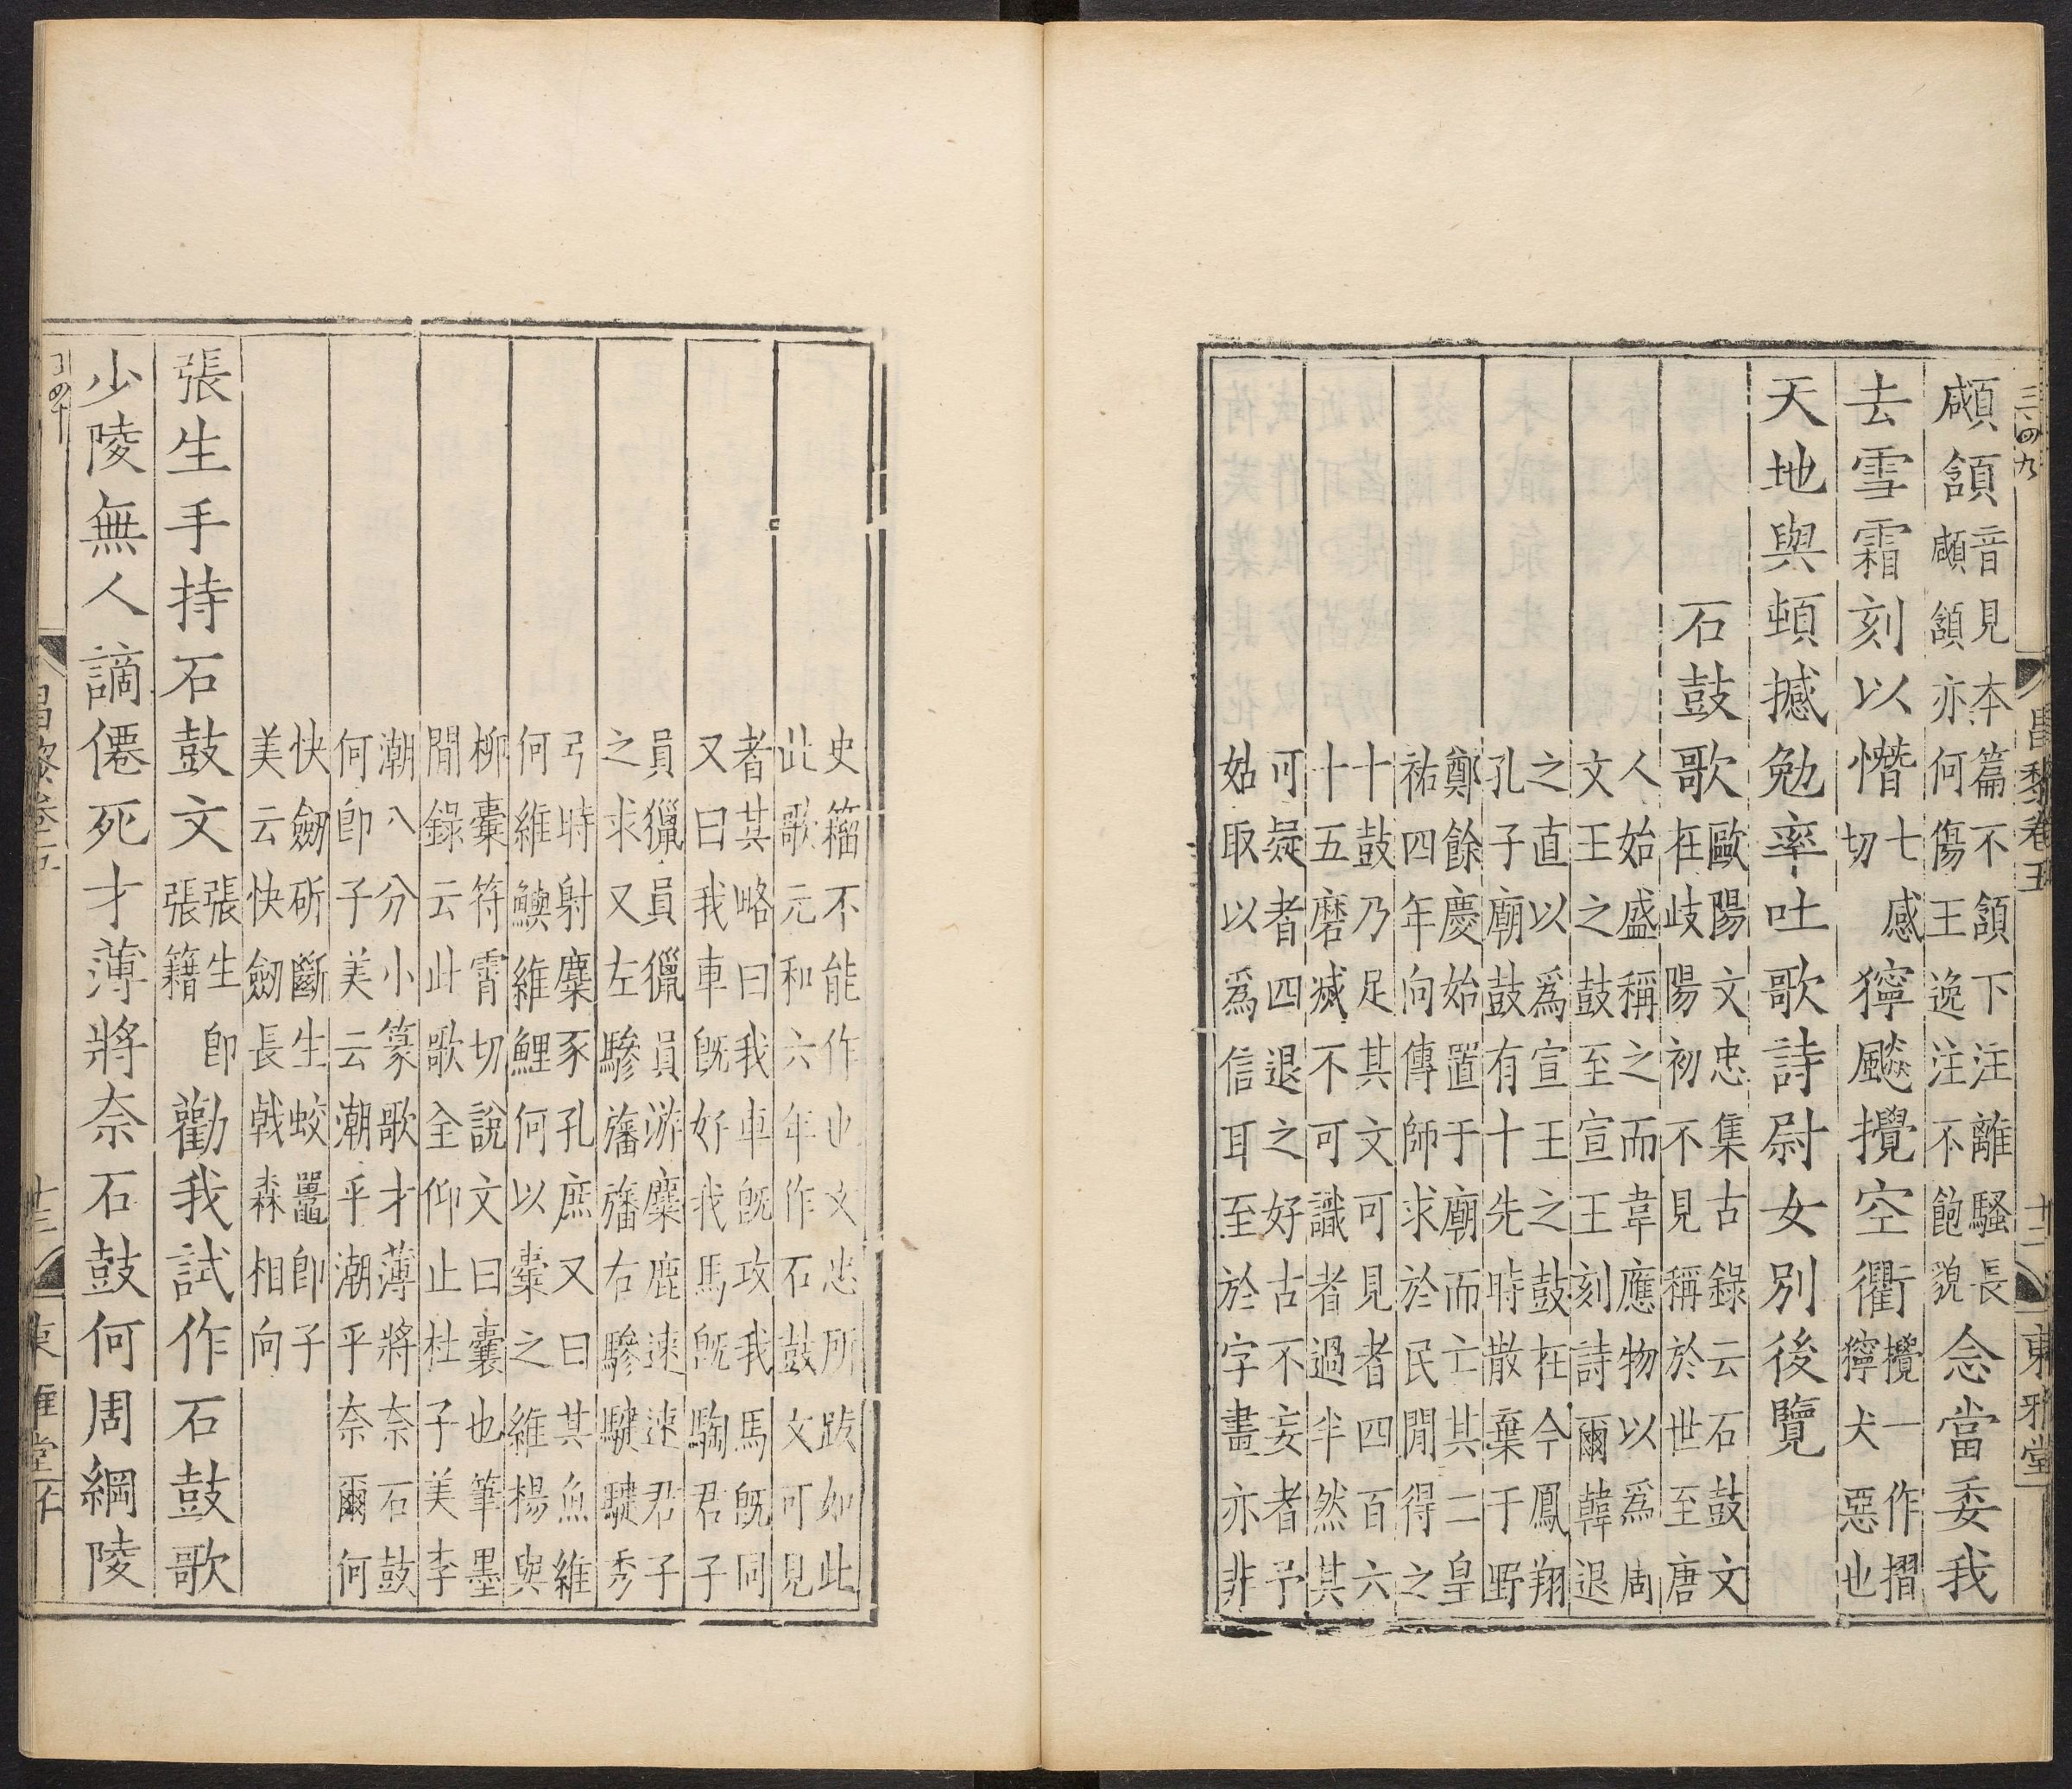 三四九　昌黎卷五　十二　東雅堂
顑頷音見本篇不頷下注離騷長顑頷亦何傷王逸注不飽貌念當委我
去雪霜刻以憯七感切獰飈攪空衢攪一作摺獰犬惡也
天地與頓撼勉率吐歌詩尉女別後覽
石鼓歌歐陽文忠集古錄云石鼓文在歧陽初不見稱於世至唐
人始盛稱之而韋應物以爲周文王之鼓至宣王刻詩爾韓退
之直以爲宣王之鼓在今鳳翔孔子廟鼓有十先時散棄于野
鄭餘慶始置于廟而亡其二皇祐四年向傳師求於民閒得之
十鼓乃足其文可見者四百六十五磨滅不可識者過半然其
可疑者四退之好古不妄者予姑取以爲信耳至於字畫亦非
史籀不能作也文忠所跋如此此歌元和六年作石鼓文可見
者其略曰我車旣攻我馬旣同又曰我車旣好我馬旣騊君子
員獵員獵員游麋鹿速速君子之求又左驂旛旛右驂騝騝秀
弓時射麋豕孔庶又曰其魚維何維鱮維鯉何以橐之維楊與
柳橐符霄切說文曰囊也筆墨閒錄云此歌全仰止杜子美李
潮八分小篆歌才薄將奈石鼓何卽子美云潮乎潮乎奈爾何
快劒斫斷生蛟鼉卽子美云快劒長戟森相向
張生手持石鼓文張生卽張籍勸我試作石鼓歌
少陵無人謫僊死才薄將奈石鼓何周綱陵
昌黎卷五　十三　東雅堂